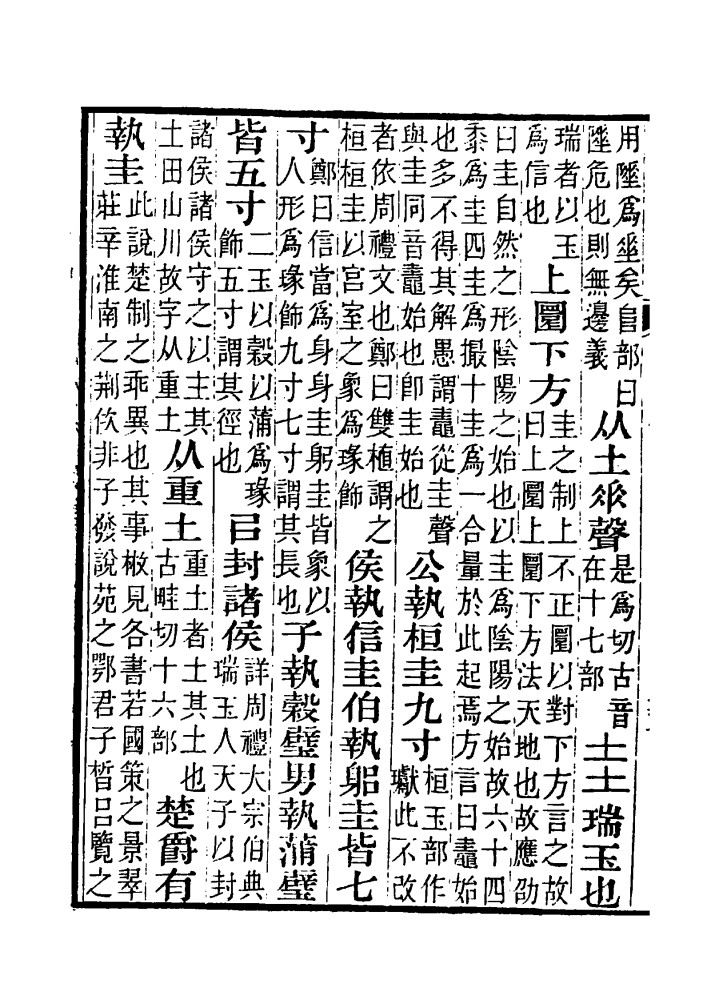 用陲爲𡍮矣𨸏部曰
陲危也則無邊義
从土𠂹聲
是爲切古音
在十七部
圭 瑞玉也
瑞者以玉
爲信也
上圜下方
圭之制上不正圜以對下方言之故
曰上圜上圜下方法天地也故應劭
曰圭自然之形陰陽之始也以圭爲陰陽之始故六十四
黍爲圭四圭爲撮十圭爲一合量於此起焉方言曰鼃始
也多不得其解愚謂鼃從圭聲
與圭同音鼃始也卽圭始也
公執桓圭九寸
桓玉部作
瓛此不改
者依周禮文也鄭曰雙植謂之
桓桓圭以宮室之象爲瑑飾
侯執信圭伯執躳圭皆七
寸
鄭曰信當爲身身圭躬圭皆象以
人形爲瑑飾九寸七寸謂其長也
子執穀璧男執蒲璧
皆五寸
二玉以穀以蒲爲瑑
飾五寸謂其徑也
㠯封諸侯
詳周禮大宗伯典
瑞玉人天子以封
諸侯諸侯守之以主其
土田山川故字从重土
从重土
重土者土其土也
古畦切十六部
楚爵有
執圭
此說楚制之乖異也其事㪚見各書若國策之景翠
莊辛淮南之荆佽非子發說苑之鄂君子晳呂覽之